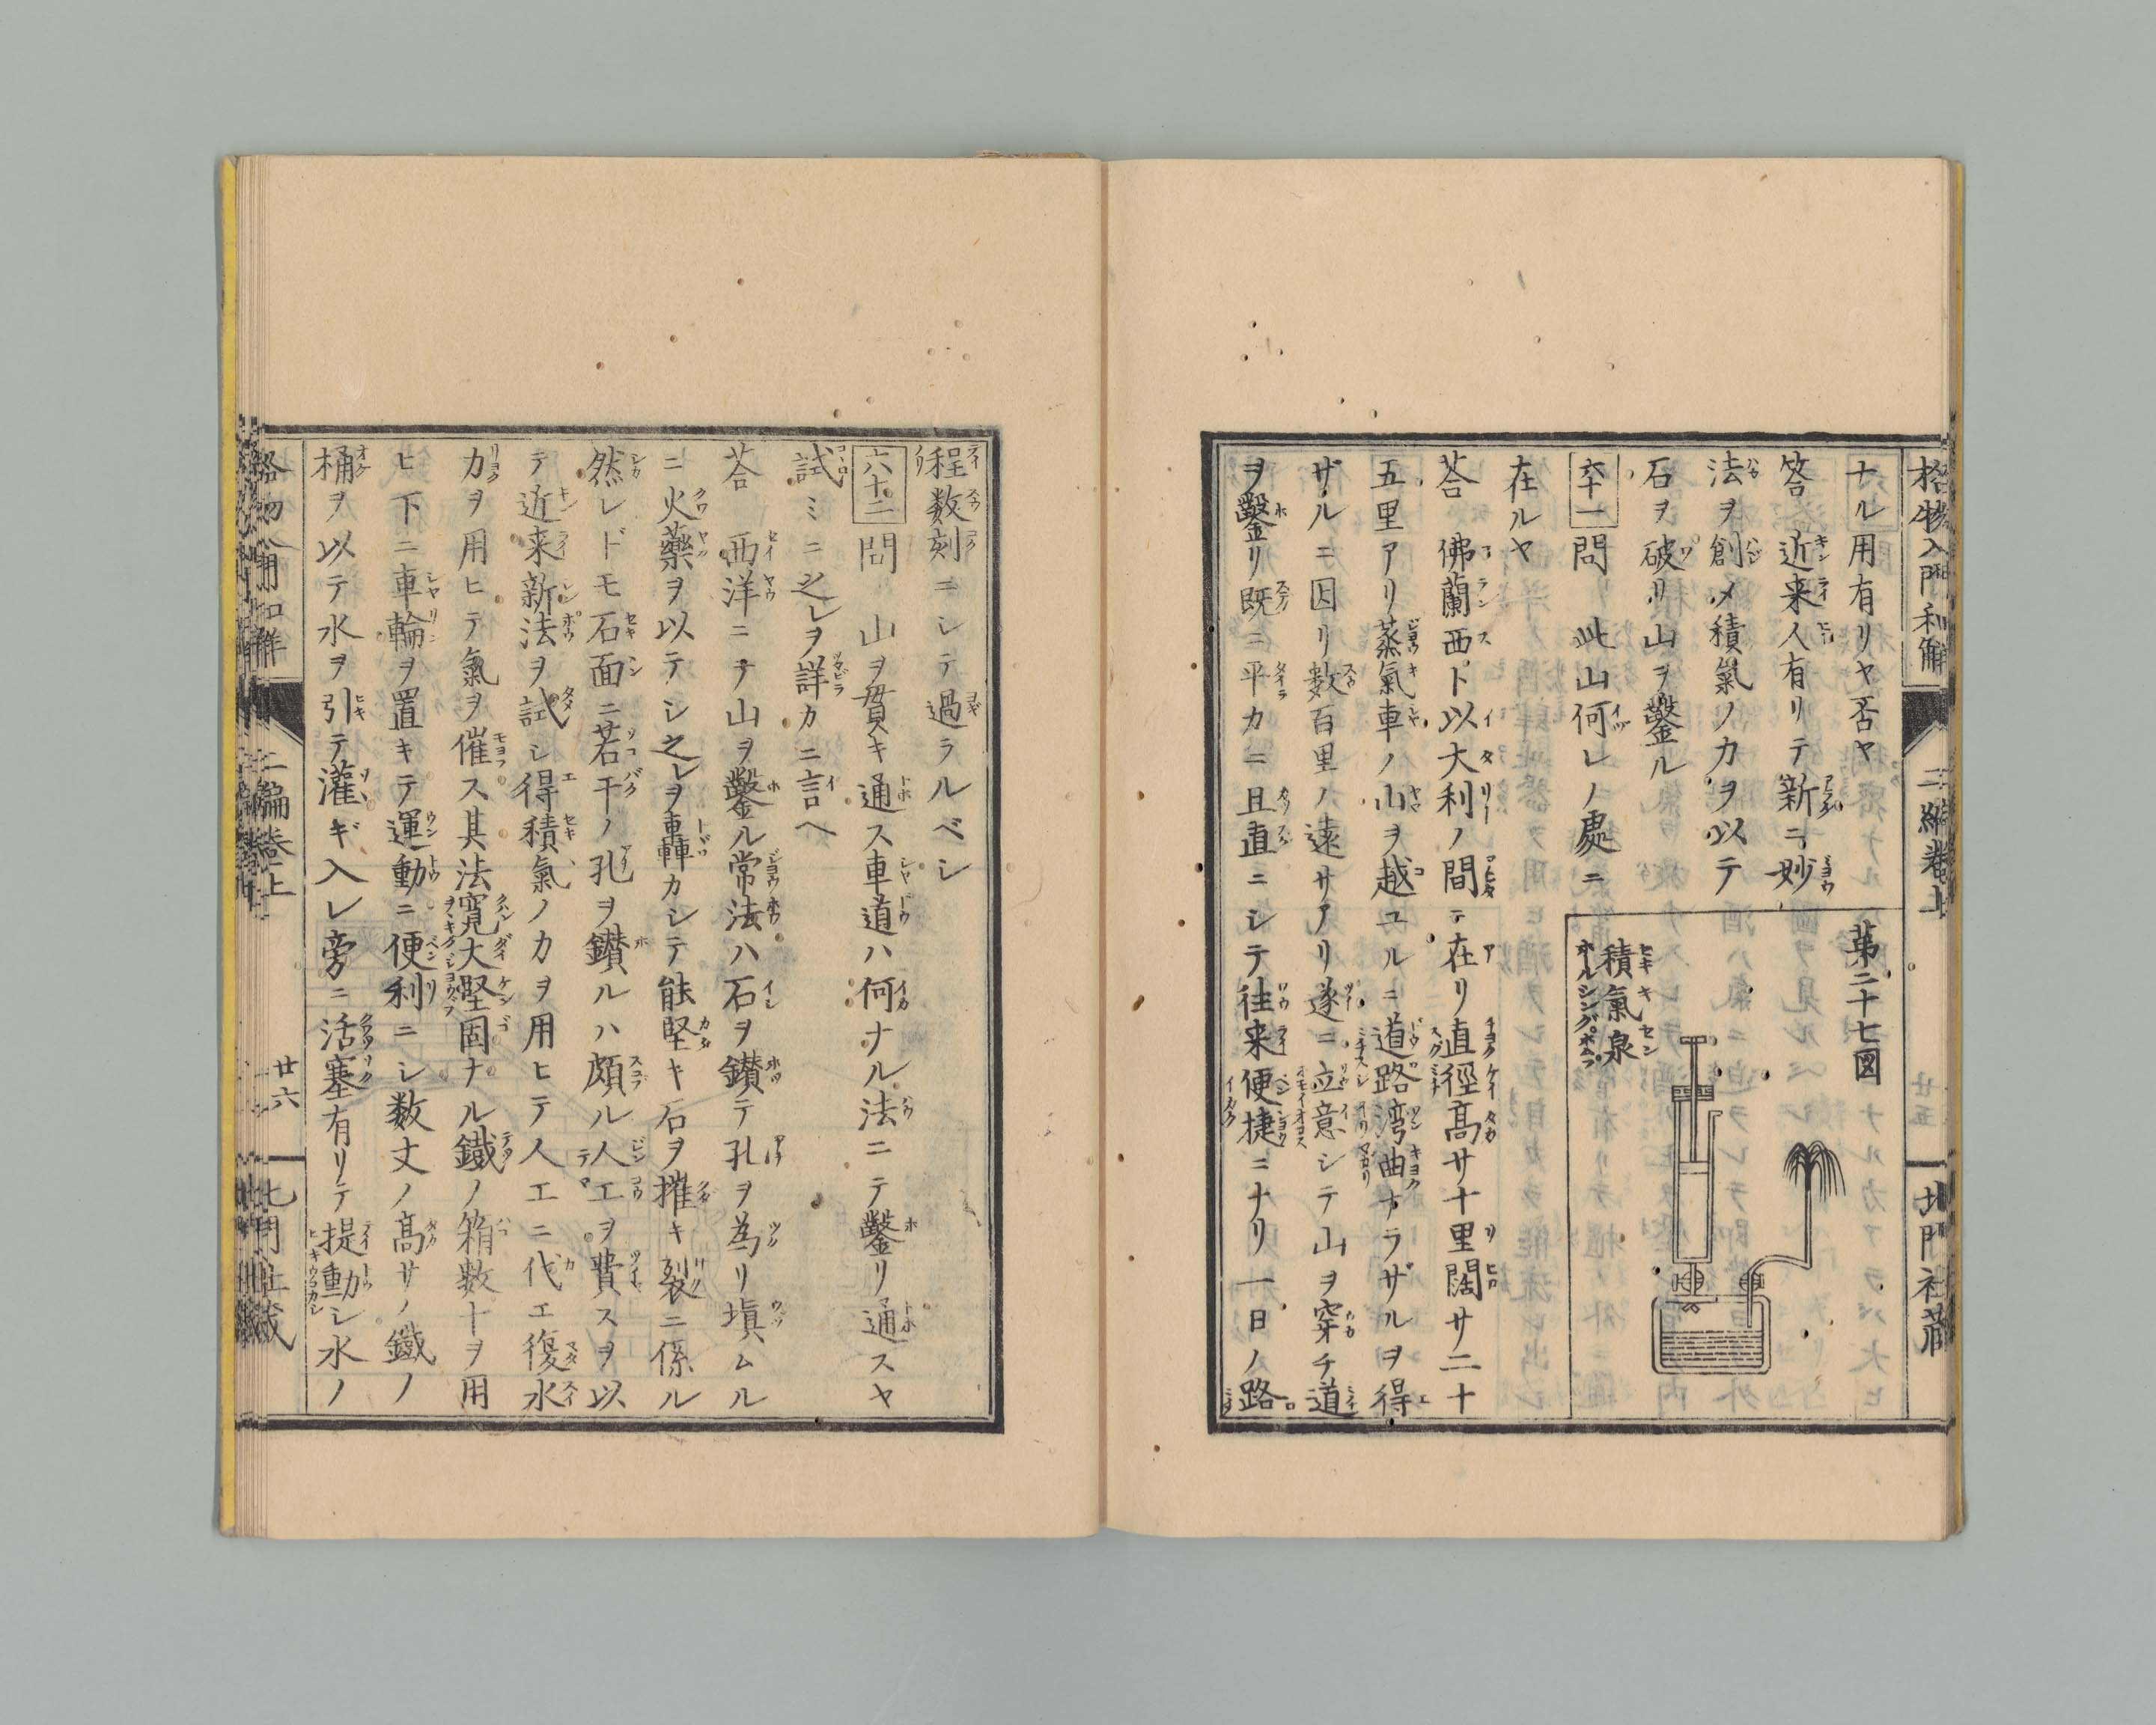 格物入門和解
二編巻上
廿五
北門社蔵
ナル用有リヤ否ヤ
答 近来人有リテ新ニ妙
法ヲ創メ積氣ノ力ヲ以テ
石ヲ破リ山ヲ鑿ル
六十一 問 此山何レノ處ニ
第二十七図
積氣泉
在ルヤ
荅 佛蘭西ト以大利ノ間ニ在リ直徑高サ十里闊サ二十
五里アリ蒸氣車ノ山ヲ越ユルニ道路湾曲ナラザルヲ得
ザルニ因リ數百里ノ遠サアリ遂ニ立意シテ山ヲ穿チ道
ヲ鑿リ既ニ平カニ且直ニシテ往来便捷ニナリ一日ノ路
程数刻ニシテ過ラルベシ
六十二 問 山ヲ貫キ通ス車道ハ何ナル法ニテ鑿リ通スヤ
試ミニ之レヲ詳カニ言ヘ
荅 西洋ニテ山ヲ鑿ル常法ハ石ヲ鑚テ孔ヲ為リ塡ムル
ニ火藥ヲ以テシ之レヲ轟カシテ能堅キ石ヲ摧キ裂ニ係ル
然レドモ石面ニ若干ノ孔ヲ鑚ルハ頗ル人工ヲ費スヲ以
テ近来新法ヲ試シ得積氣ノ力ヲ用ヒテ人工ニ代エ復水
力ヲ用ヒテ氣ヲ催ス其法寛大堅固ナル鐵ノ箱數十ヲ用
ヒ下ニ車輪ヲ置キテ運動ニ便利ニシ数丈ノ高サノ鐵ノ
桶ヲ以テ水ヲ引テ灌ギ入レ旁ニ活塞有リテ提動シ水ノ
格物入門和解
二編巻上
廿六
北門社蔵